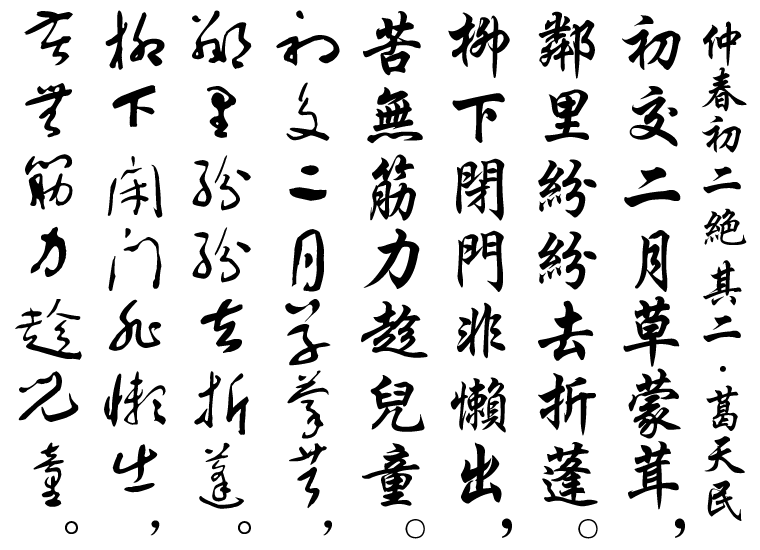 仲春初二絕其二·葛天民
初交二月草蒙茸，
鄰里紛紛去折蓬。
柳下閉門非懶出，
苦無筋力趁兒童。
初交二月草蒙茸，
鄰里紛紛去折蓬。
柳下閉門非懶出，
苦無筋力趁兒童。